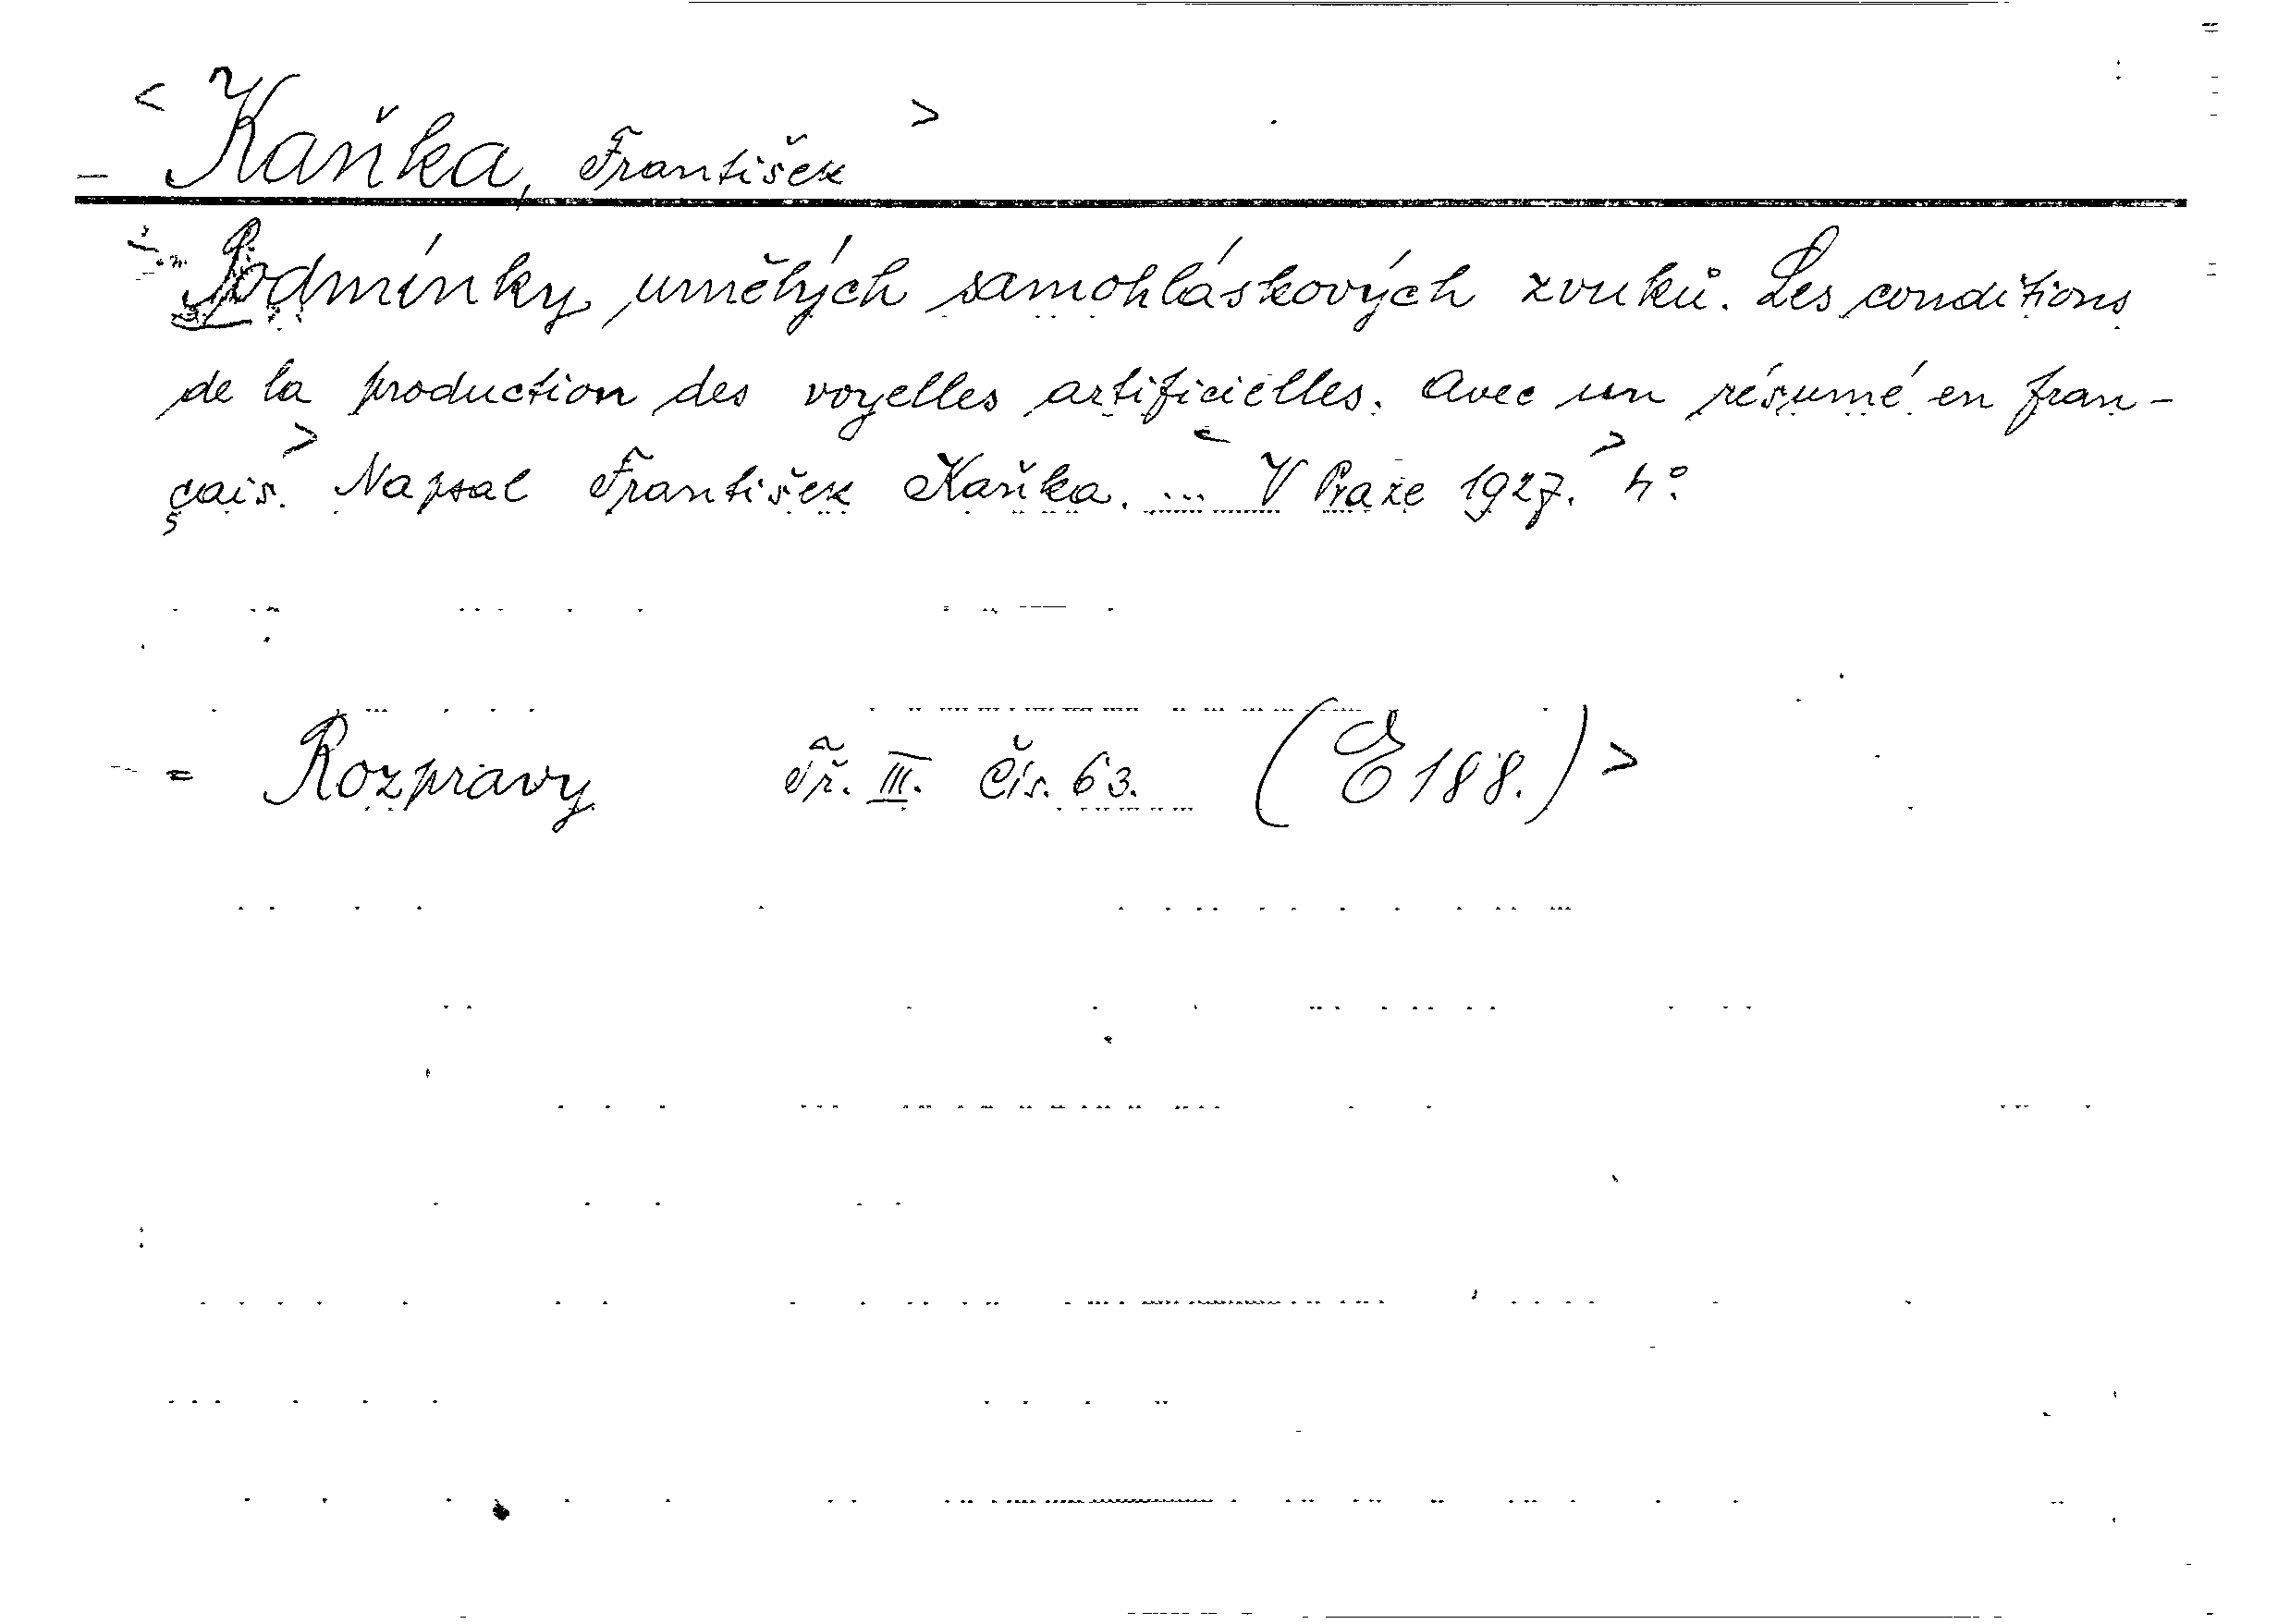 < Kaňka, František >
Podmínky umělých samohláskových zvuků. Les conditions
de la production des voyelles artificielles. Avec un résumé en fran-
çais.> Napsal František Kaňka. ... < V Praze 1927.> 4°.
= Rozpravy Tř. III. Čís. 63. (E 188.) >